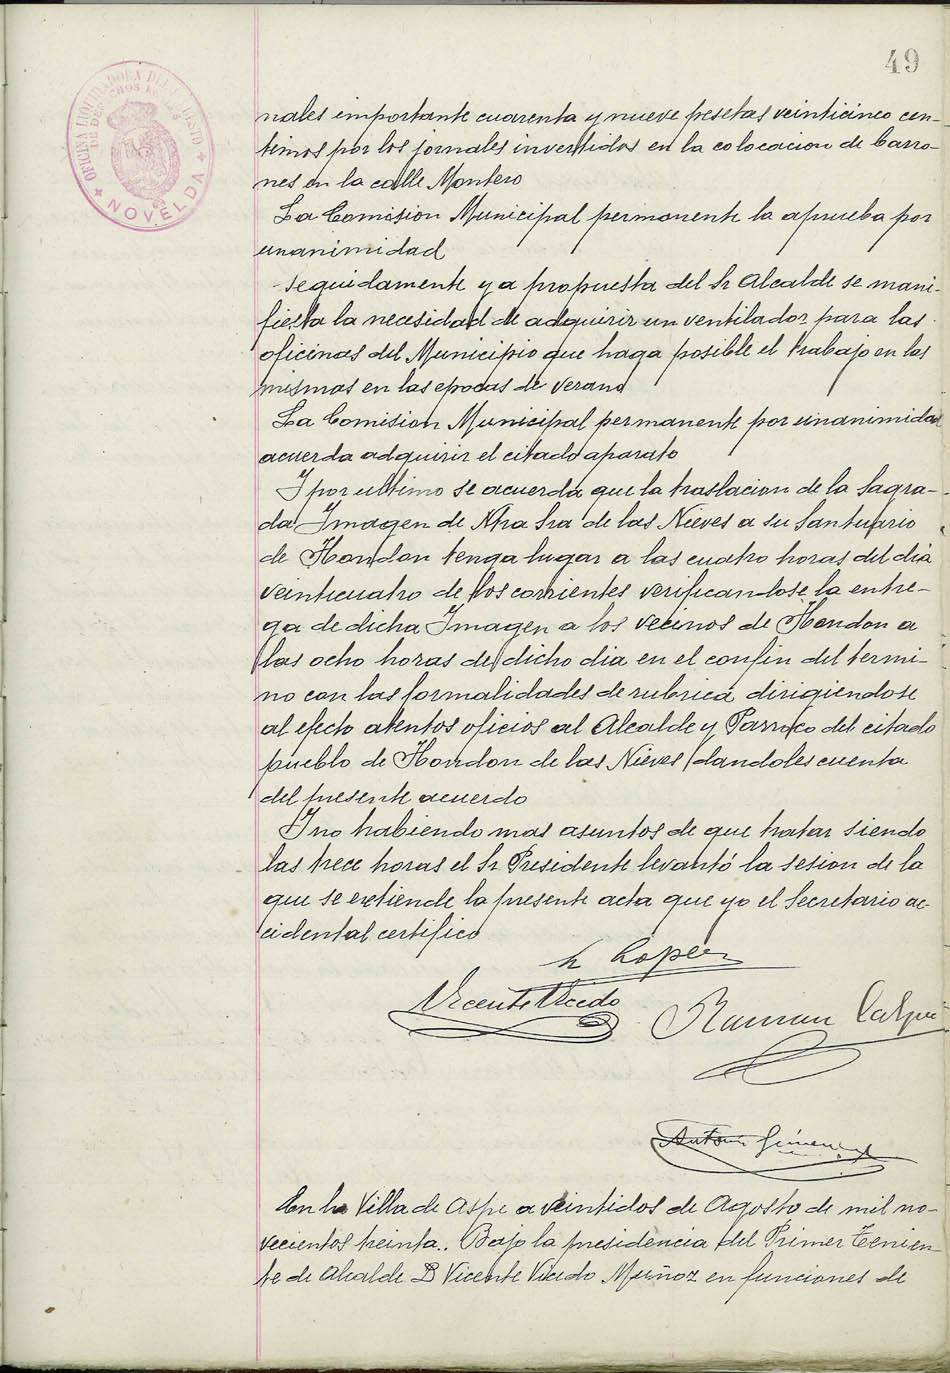 49
OFICINA LIQUIDADORA DEL IMPUESTO
DE DERECHOS REALES
NOVELDA
nales importante cuarenta y nueve pesetas veinticinco cen-
timos por los jornales invertidos en la colocacion de barro-
nes en la calle Montero
La Comision Municipal permanente la aprueba por
unanimidad
seguidamente y a propuesta del Sr Alcalde se mani-
fiesta la necesidad de adquirir un ventilador para las
oficinas del Municipio que haga posible el trabajo en las
mismas en las epocas de verano
La Comision Municipal permanente por unanimidad
acuerda adquirir el citado aparato
I por ultimo se acuerda que la traslacion de la Sagra-
da Imagen de Ntra Sra de las Nieves a su Santuario
de Hondon tenga lugar a las cuatro horas del dia
veinticuatro de los corrientes verificandose la entre-
ga de dicha Imagen a los vecinos de Hondon a
las ocho horas de dicho dia en el confin del termi-
no con las formalidades de rubrica dirigiendose
al efecto atentos oficios al Alcalde y Parroco del citado
pueblo de Hondon de las Nieves dandoles cuenta
del presente acuerdo
I no habiendo mas asuntos de que tratar siendo
las trece horas el Sr Presidente levantó la sesion de la
que se extiende la presente acta que yo el Secretario ac-
cidental certifico
Lopez
Vicente Vicedo
Ramon
Antonio Gimenez
En la Villa de Aspe a veintidos de Agosto de mil no-
vecientos treinta.. Bajo la presidencia del Primer Tenien-
te de Alcalde D Vicente Vicedo Muñoz en funciones de